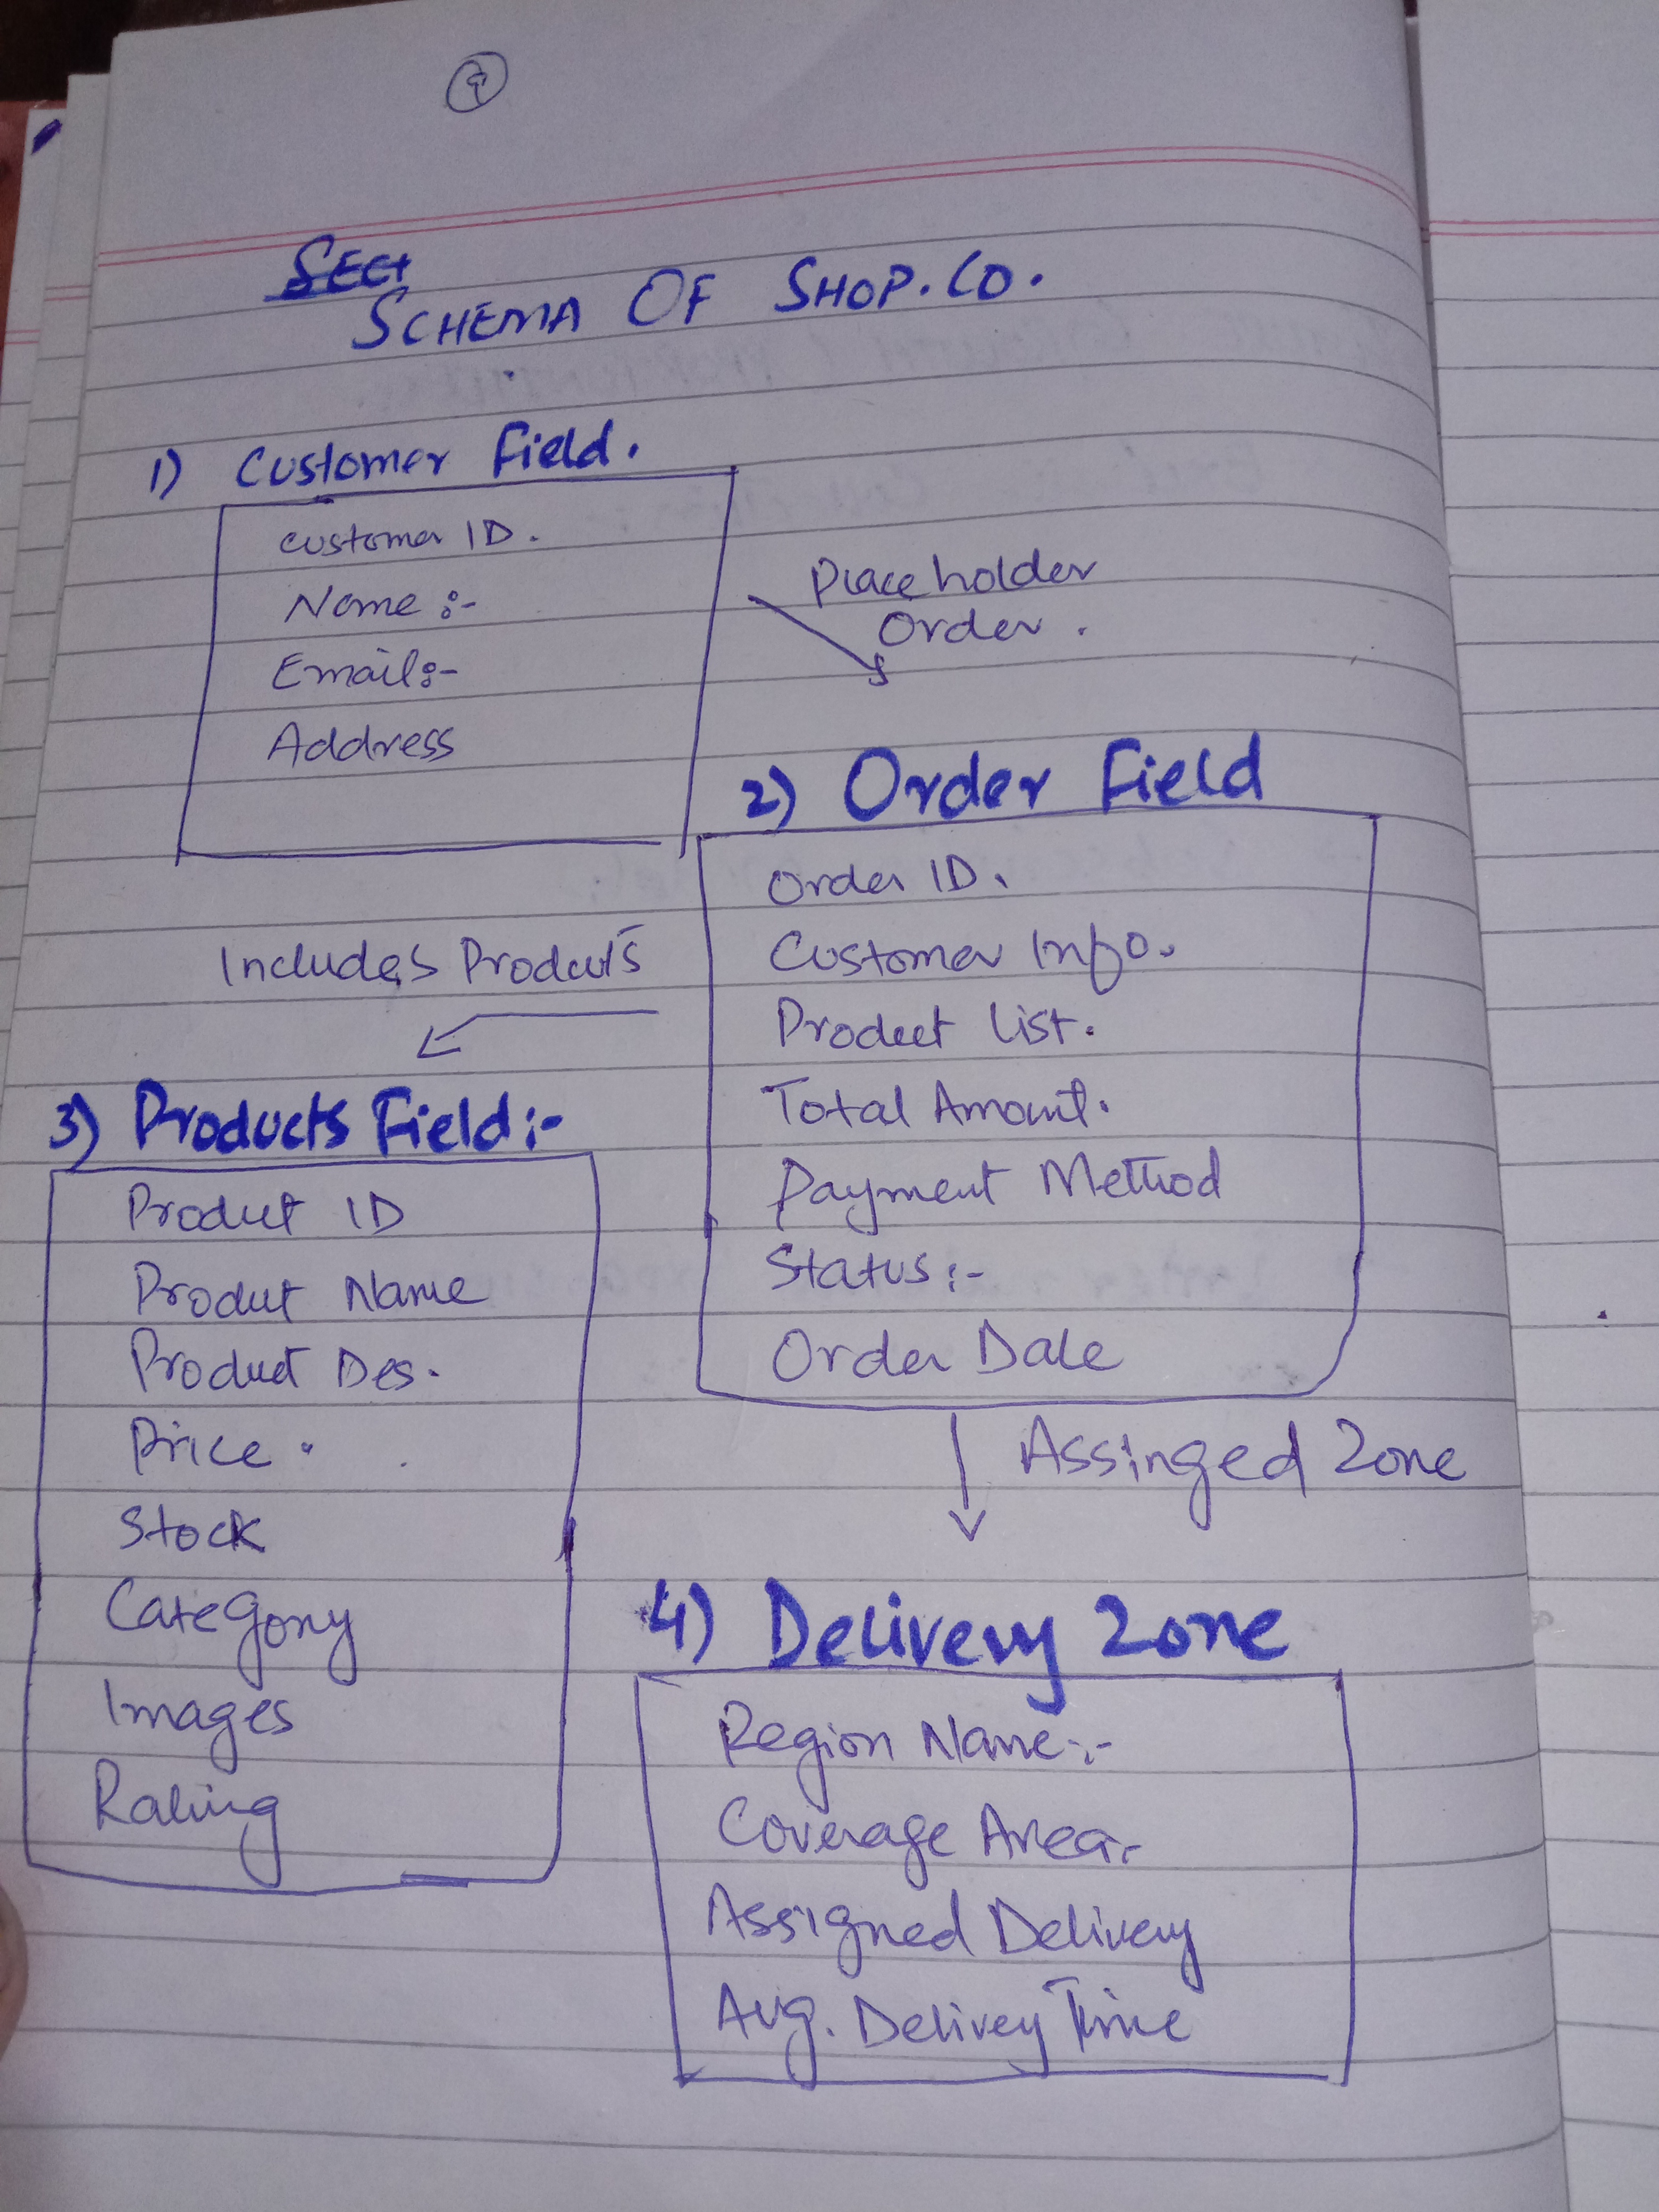 SCHEMA OF SHOP.CO.
1) Customer Field.
customer ID.
Name :-
Email:-
Address
Place holder
Order.
2) Order Field
Order ID.
Customer Info.
Product List.
Total Amount.
Payment Method
Status:-
Order Date
Includes Products
3) Products Field:-
Product ID
Product Name
Product Des.
Price.
Stock
Category
Images
Rating
Assinged Zone
4) Delivery Zone
Region Name:-
Coverage Area.
Assigned Delivery
Avg. Delivey Time